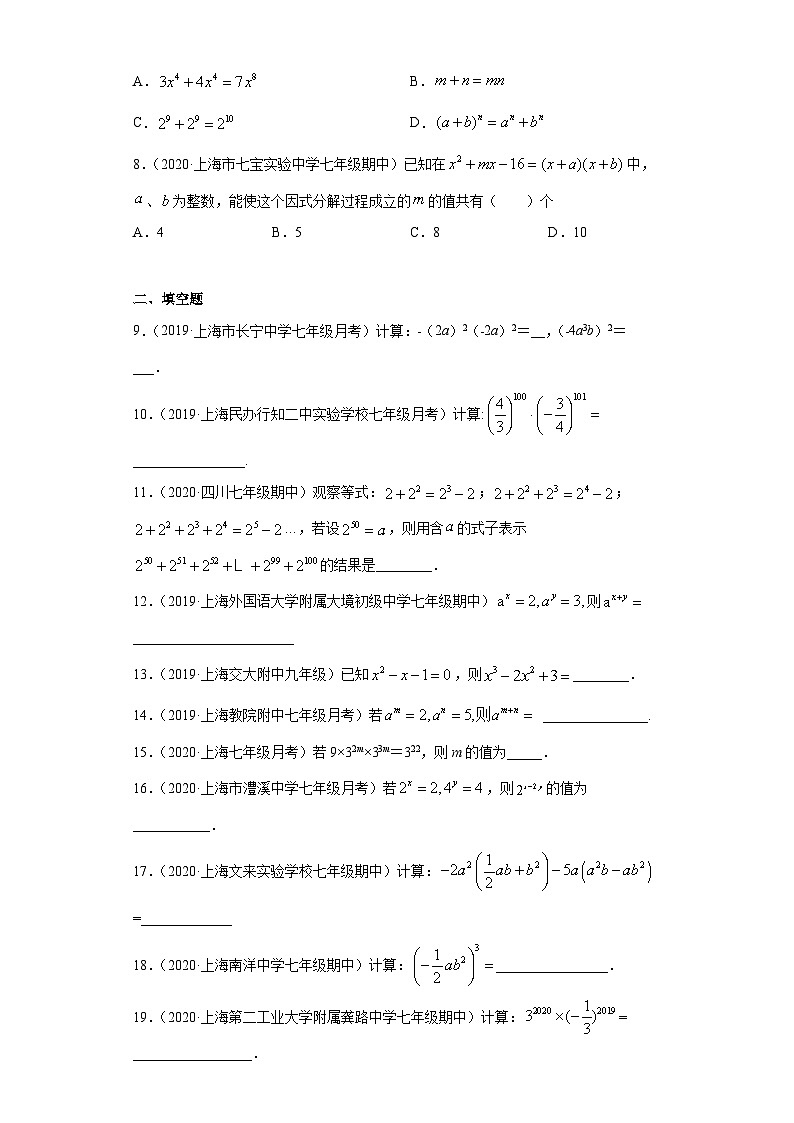 A．3x⁴+4x⁴=7x⁸ B．m+n=mn
C．2⁹+2⁹=2¹⁰ D．(a+b)ⁿ=aⁿ+bⁿ
8．（2020·上海市七宝实验中学七年级期中）已知在x²+mx−16=(x+a)(x+b)中，
a、b为整数，能使这个因式分解过程成立的m的值共有（ ）个
A．4 B．5 C．8 D．10
二、填空题
9．（2019·上海市长宁中学七年级月考）计算：-（2a）²（-2a）²＝__，（-4a³b）²＝
___．
10．（2019·上海民办行知二中实验学校七年级月考）计算:(4/3)¹⁰⁰·(−3/4)¹⁰¹=
________________.
11．（2020·四川七年级期中）观察等式：2+2²=2³−2；2+2²+2³=2⁴−2；
2+2²+2³+2⁴=2⁵−2…，若设2⁵⁰=a，则用含a的式子表示
2⁵⁰+2⁵¹+2⁵²+L +2⁹⁹+2¹⁰⁰的结果是________．
12．（2019·上海外国语大学附属大境初级中学七年级期中）aˣ=2,aʸ=3,则aˣ⁺ʸ=
_______________________
13．（2019·上海交大附中九年级）已知x²−x−1=0，则x³−2x²+3=________．
14．（2019·上海教院附中七年级月考）若aᵐ=2,aⁿ=5,则aᵐ⁺ⁿ= _______________.
15．（2020·上海七年级月考）若9×3²ᵐ×3³ᵐ＝3²²，则m的值为_____．
16．（2020·上海市澧溪中学七年级月考）若2ˣ=2,4ʸ=4，则2ˣ⁻²ʸ的值为
___________．
17．（2020·上海文来实验学校七年级期中）计算：−2a²(1/2ab+b²)−5a(a²b−ab²)
=_____________
18．（2020·上海南洋中学七年级期中）计算：(−1/2ab²)³=________________．
19．（2020·上海第二工业大学附属龚路中学七年级期中）计算：3²⁰²⁰×(−1/3)²⁰¹⁹=
_________________．